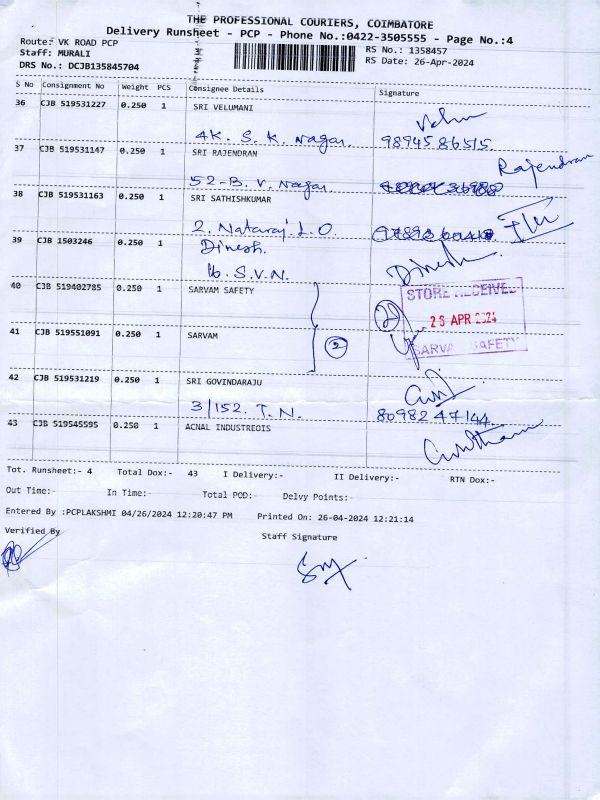 THE PROFESSIONAL COURIERS, COIMBATORE
Delivery Runsheet - PCP - Phone No.:0422-3505555 - Page No.:4
Route: VK ROAD PCP
RS No.: 1358457
Staff: MURALI
RS Date: 26-Apr-2024
DRS No.: DCJB135845704
S No Consignment No Weight PCS Consignee Details Signature
36 CJB 519531227 0.250 1 SRI VELUMANI
4K. S. K. Nagar. 9894586515.
37 CJB 519531147 0.250 1 SRI RAJENDRAN Rajendran
52-B. V. Nagar
38 CJB 519531163 0.250 1 SRI SATHISHKUMAR
2. Nataraj L.O.
39 CJB 1503246 0.250 1 Dinesh. Dinesh.
16. S.V.N.
40 CJB 519402785 0.250 1 SARVAM SAFETY STORE RECEIVED
26 APR 2024
41 CJB 519551091 0.250 1 SARVAM 2 SARVAM SAFETY
42 CJB 519531219 0.250 1 SRI GOVINDARAJU
3/152. T. N. 8098247144.
43 CJB 519545595 0.250 1 ACNAL INDUSTREOIS
Tot. Runsheet:- 4 Total Dox:- 43 I Delivery:- II Delivery:- RTN Dox:-
Out Time:- In Time:- Total POD:- Delvy Points:-
Entered By :PCPLAKSHMI 04/26/2024 12:20:47 PM Printed On: 26-04-2024 12:21:14
Verified By
Staff Signature